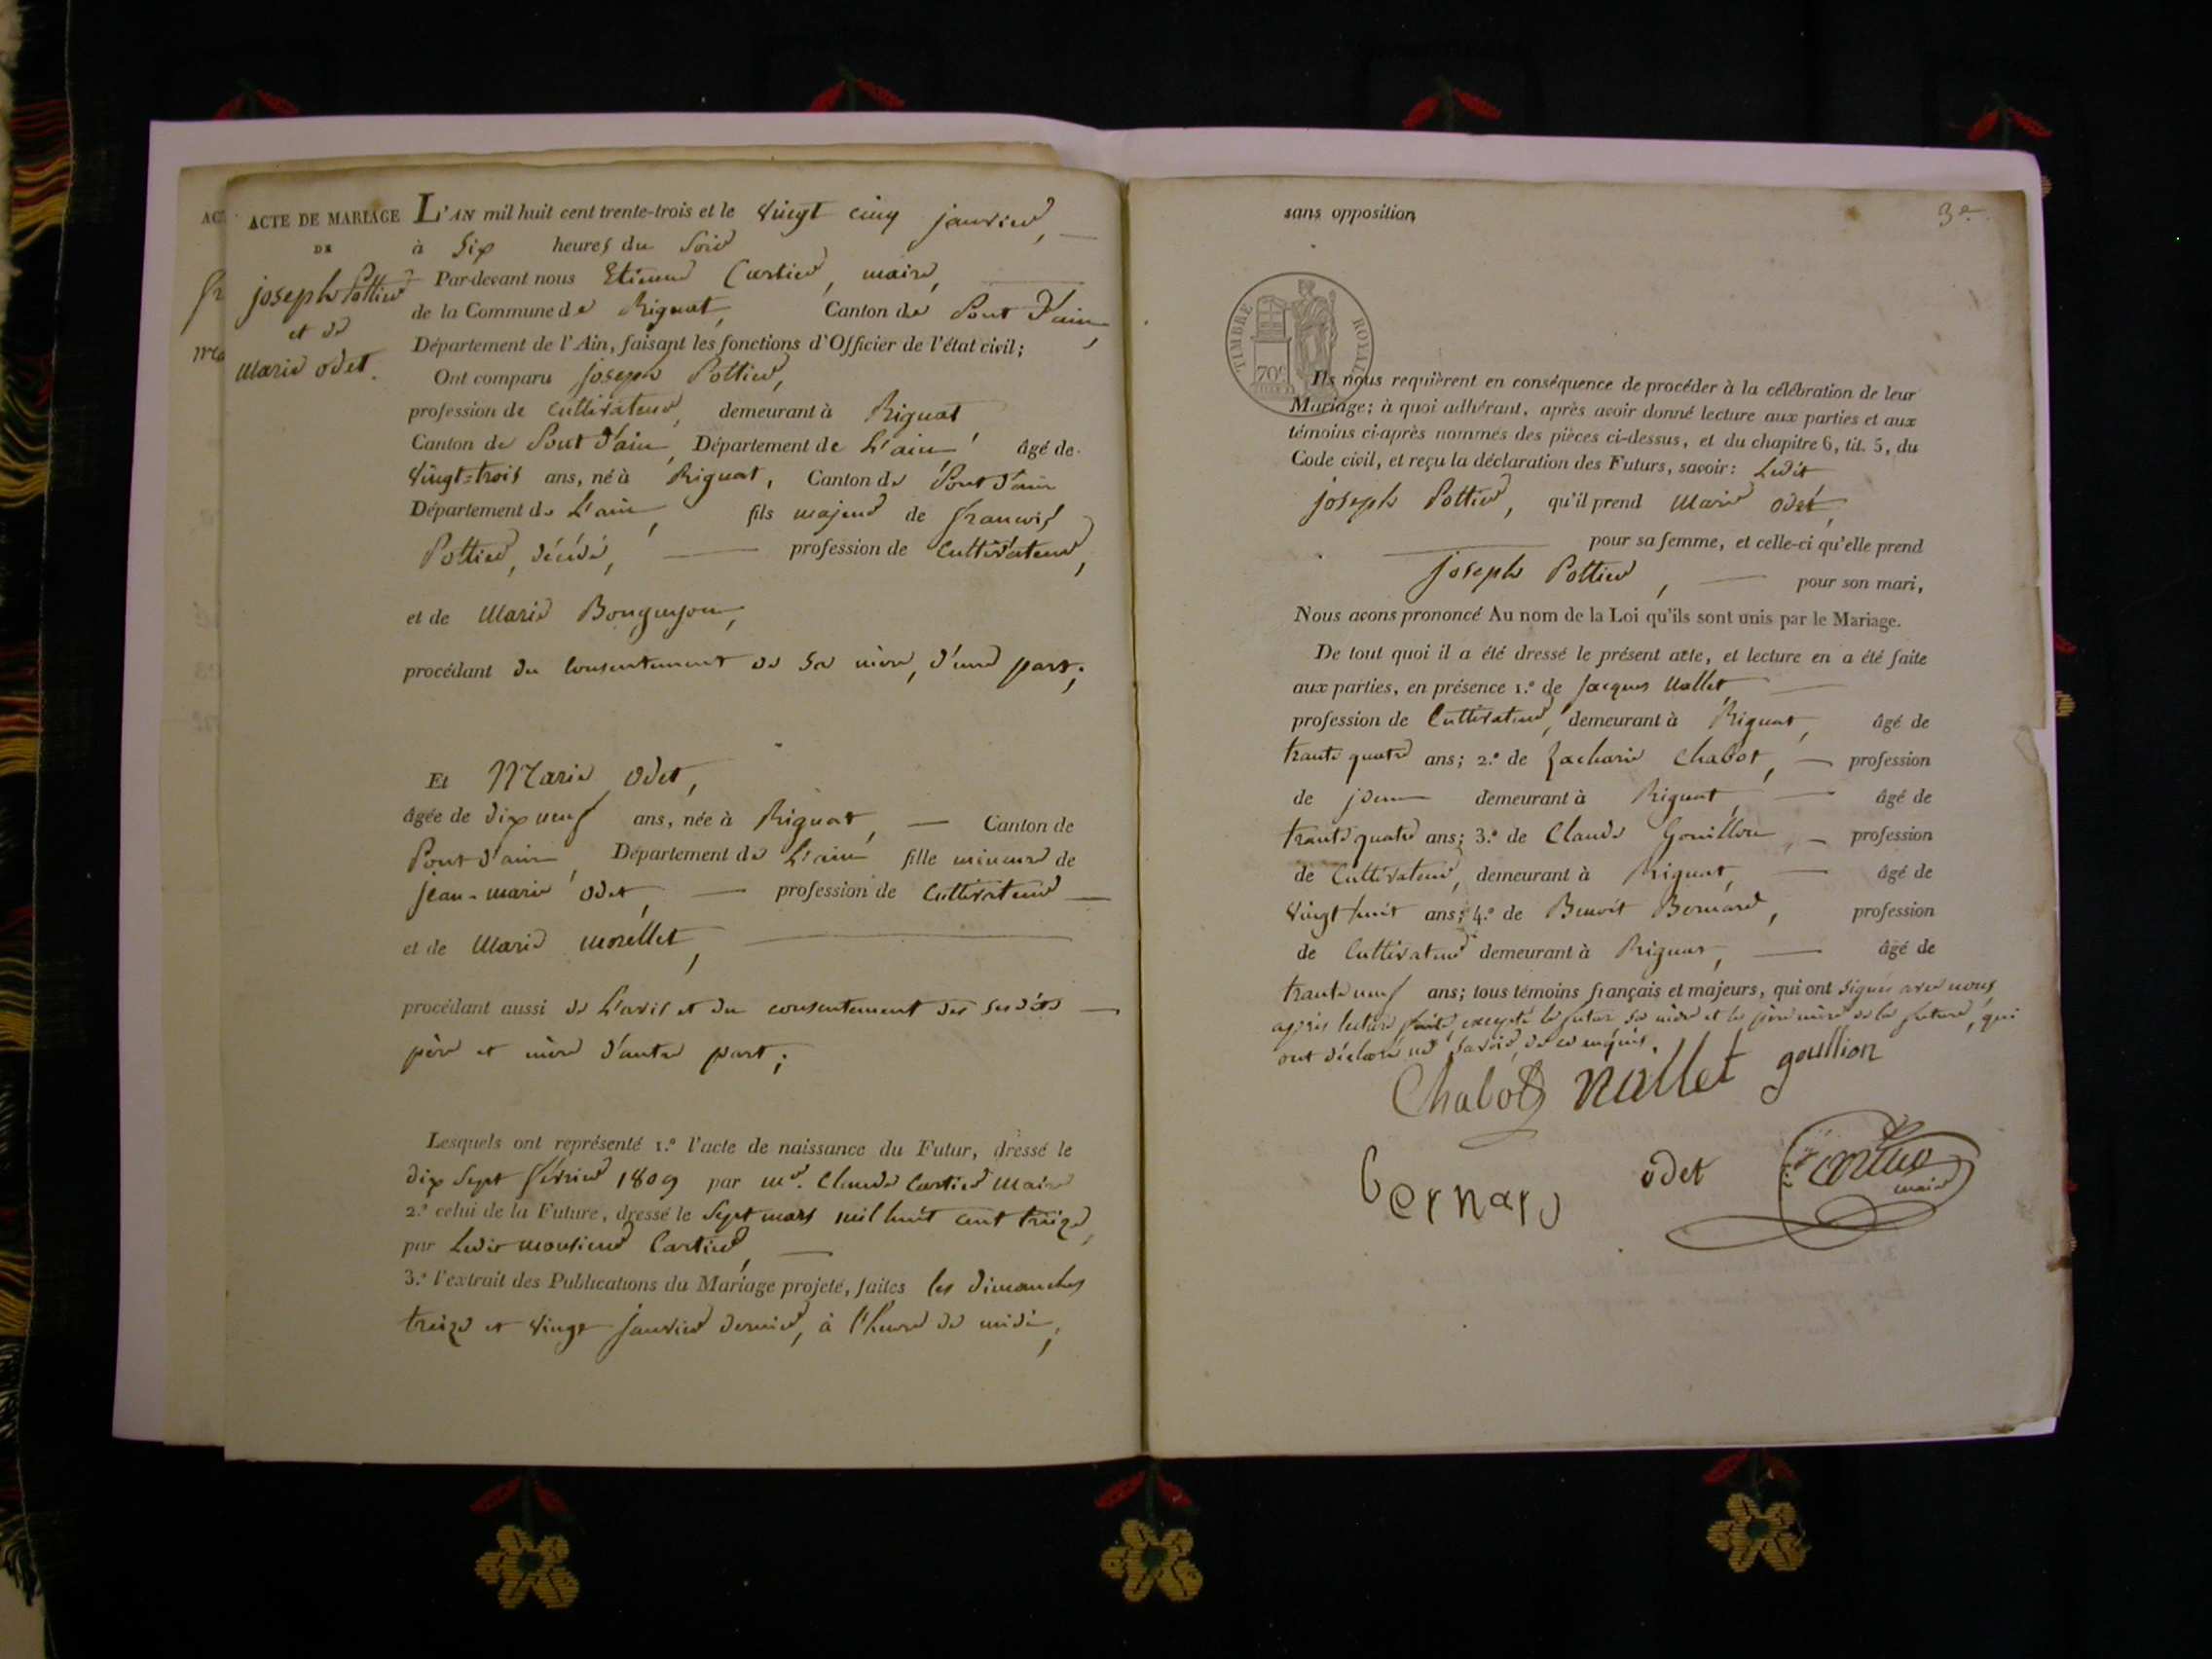 ACTE DE MARIAGE
DE
joseph Pottier
et de
marie odet.
L'AN mil huit cent trente-trois et le vingt cinq janvier,
à six heures du soir
Par-devant nous Etienne Cartier, maire,
de la Commune de Rignat, Canton de Pont d'ain,
Département de l'Ain, faisant les fonctions d'Officier de l'état civil;
Ont comparu joseph Pottier,
profession de cultivateur, demeurant à Rignat
Canton de Pont d'ain, Département de L'ain, âgé de
vingt-trois ans, né à Rignat, Canton de Pont d'ain
Département de L'ain, fils majeur de francois
Pottier, décédé, profession de cultivateur,
et de Marie
procédant du consentement de sa mère, d'une part;
Et Marie odet,
âgée de dix neuf ans, née à Rignat, Canton de
Pont d'ain, Département de L'ain fille mineure de
jean-marie odet, profession de cultivateur
et de Marie morellet,
procédant aussi de L'avis et du consentement des susdits
père et mère d'autre part;
Lesquels ont représenté 1.º l'acte de naissance du Futur, dressé le
dix sept février 1809 par mr. Claude Cartier Maire
2.º celui de la Future, dressé le sept mars mil huit cent treize,
par Ledit monsieur Cartier,
3.º l'extrait des Publications du Mariage projeté, faites les dimanches
treize et vingt janvier dernier, à l'heure de midi,
sans opposition
3e.
TIMBRE ROYAL
70c
Ils nous requièrent en conséquence de procéder à la célébration de leur
Mariage; à quoi adhérant, après avoir donné lecture aux parties et aux
témoins ci-après nommés des pièces ci-dessus, et du chapitre 6, tit. 5, du
Code civil, et reçu la déclaration des Futurs, savoir: Ledit
joseph Pottier, qu'il prend Marie odet,
pour sa femme, et celle-ci qu'elle prend
joseph Pottier, pour son mari,
Nous avons prononcé Au nom de la Loi qu'ils sont unis par le Mariage.
De tout quoi il a été dressé le présent acte, et lecture en a été faite
aux parties, en présence 1.º de jacques Nallet,
profession de cultivateur, demeurant à Rignat, âgé de
trante quatre ans; 2.º de Zacharie Chabot, profession
de idem demeurant à Rignat, âgé de
trante quatre ans; 3.º de Claude Gouillon, profession
de cultivateur, demeurant à Rignat, âgé de
vingt huit ans; 4.º de Benoit Bernard, profession
de cultivateur demeurant à Rignat, âgé de
trante neuf ans; tous témoins français et majeurs, qui ont signés avec nous
après lecture faite, excepté le futur sa mère et les père mère de la future, qui
ont déclaré ne savoir, de ce enquis.
Chabot Nallet goullion
bernard odet Cartier
maire